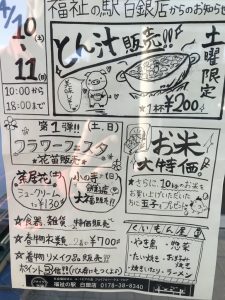 福祉の駅 白銀店からのお知らせ
4/10(土)
・
11(日)
10:00から
18:00まで
とん汁販売!!
土曜限定
1杯¥200
第1弾!!(土、日)
フラワーフェスタ
★花苗販売★
茶屋花(土)
ミニクリーム
¥130
大福販売!!
お米
大特価!
★さらに、10kgのお米を
お買い上げいただいた
方に玉子1プレゼント
★食器、雑貨 特価販売
★着物衣類 2点¥700
★着物リメイク品も販売
ポイント3倍!!
くいもん屋
・やき鳥 ・惣菜
・たい焼 ・お弁当
・焼そば
・焼きいカ ・ラーメン
福祉の駅 白銀店 0178-38-8340